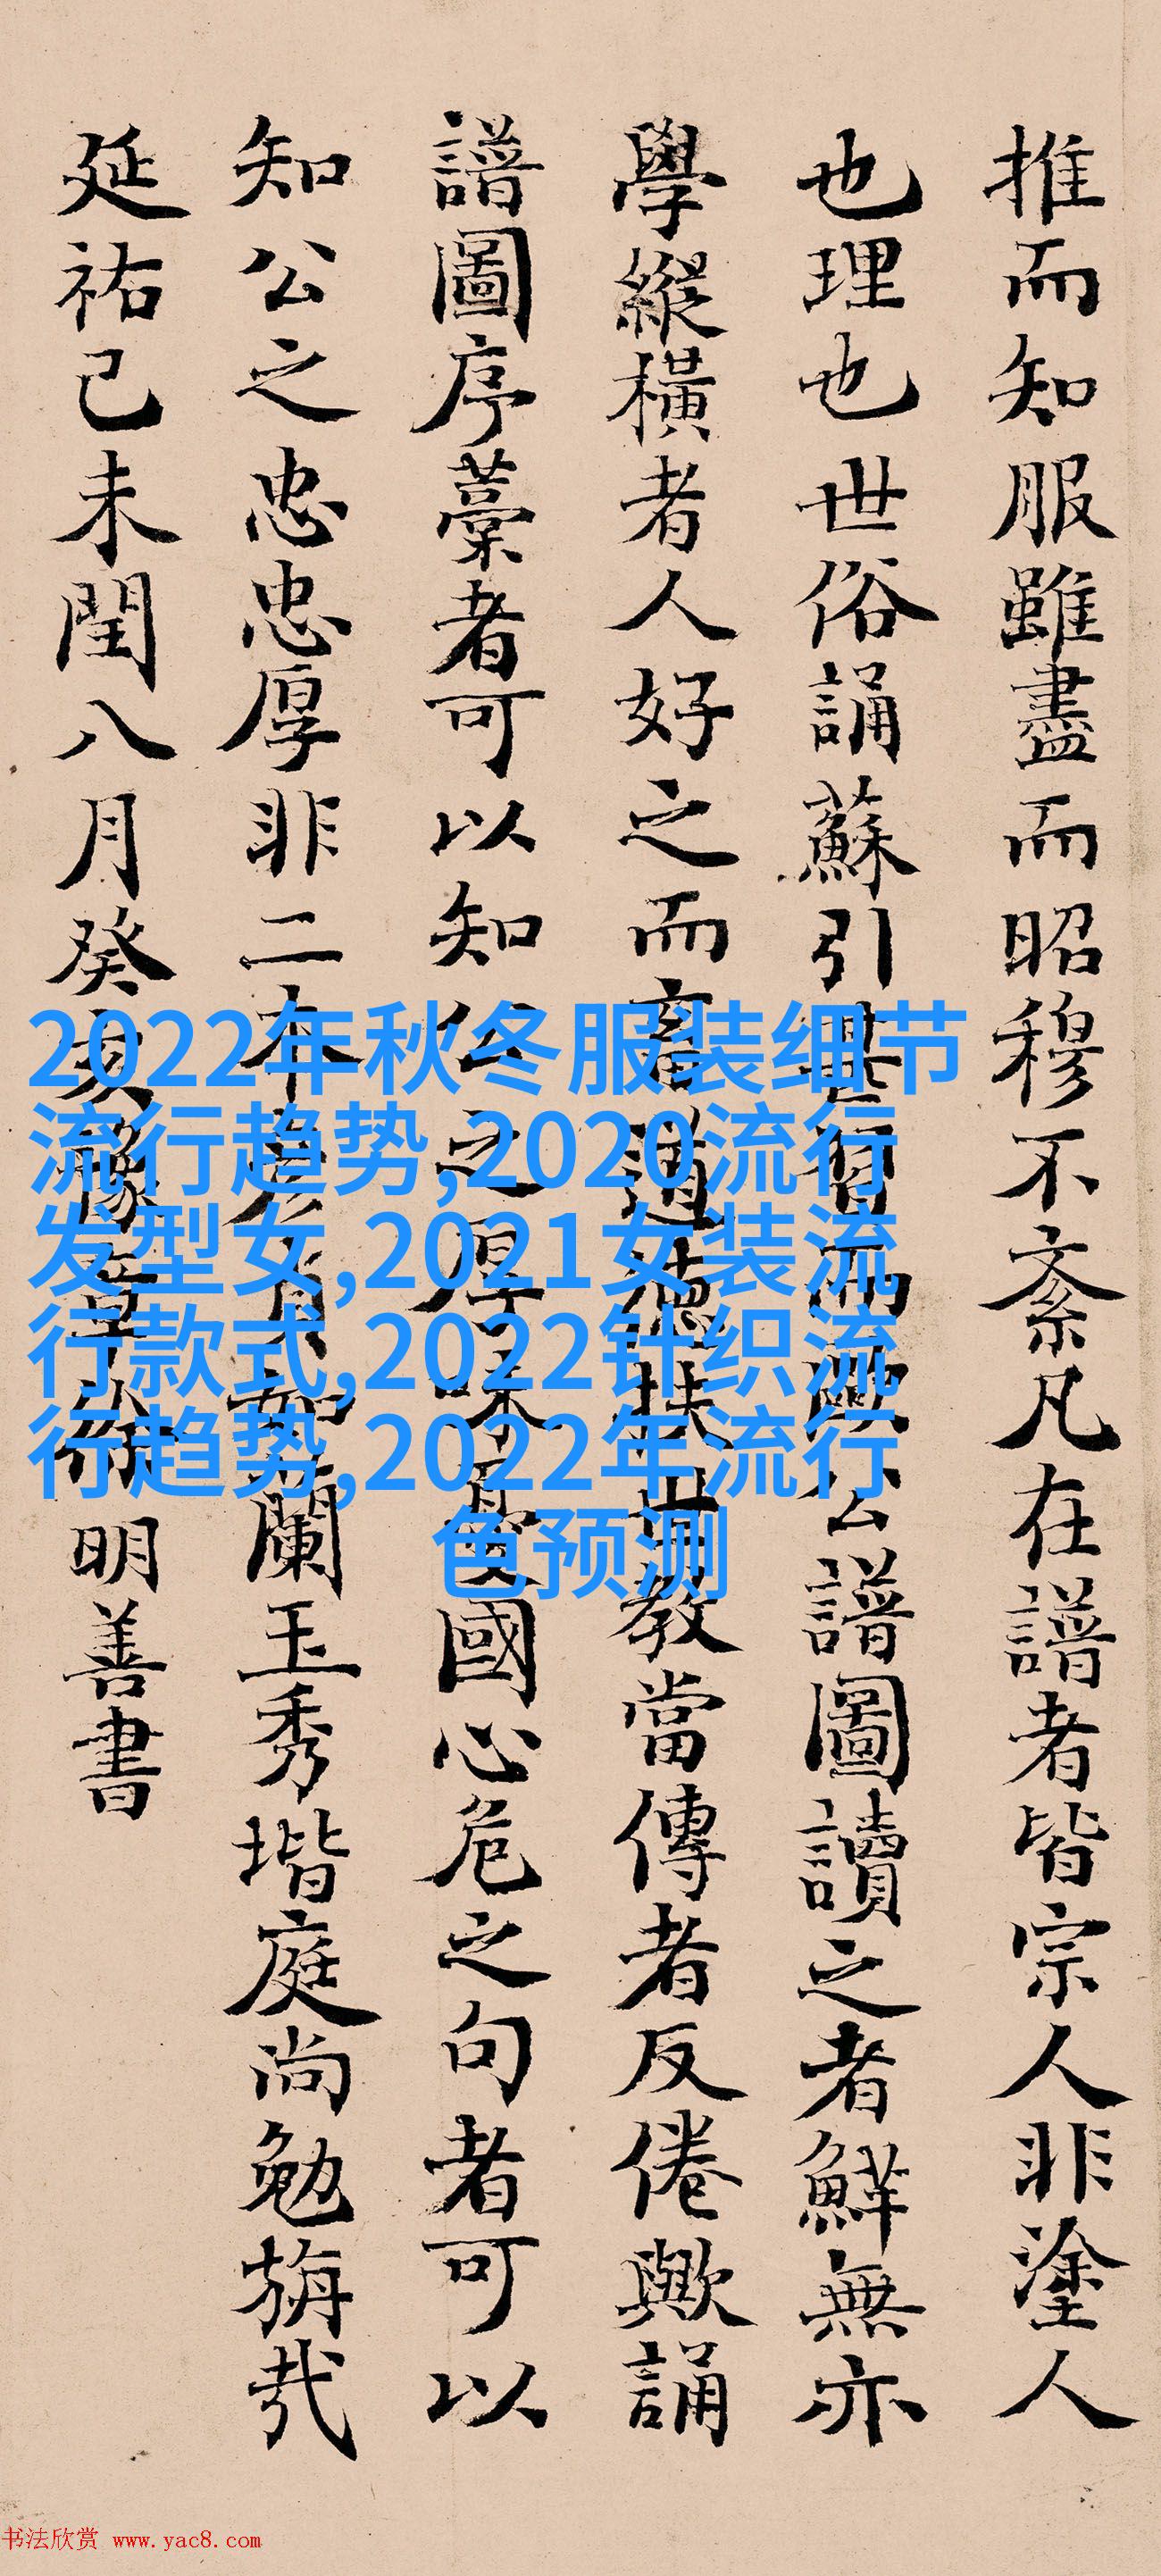 推而知服雖盡而昭穆不紊凡在譜者皆宗人非塗人
也理也世俗誦蘇引其習而歐公譜圖讀之者鮮無亦
學縱橫者人好之而畜道德扶世教當傳者反倦歟誦
譜圖序藁者可以知公之厚味憂國心危之句者可以
知公之忠忠厚非二本彥有如蘭玉秀堦庭尚勉旃哉
延祐己未閏八月癸亥豫章熊明善書
2022年秋冬服装细节
流行趋势,2020流行
发型女,2021女装流
行款式,2022针织流
行趋势,2022年流行
色预测
书法欣赏 www.yac8.com